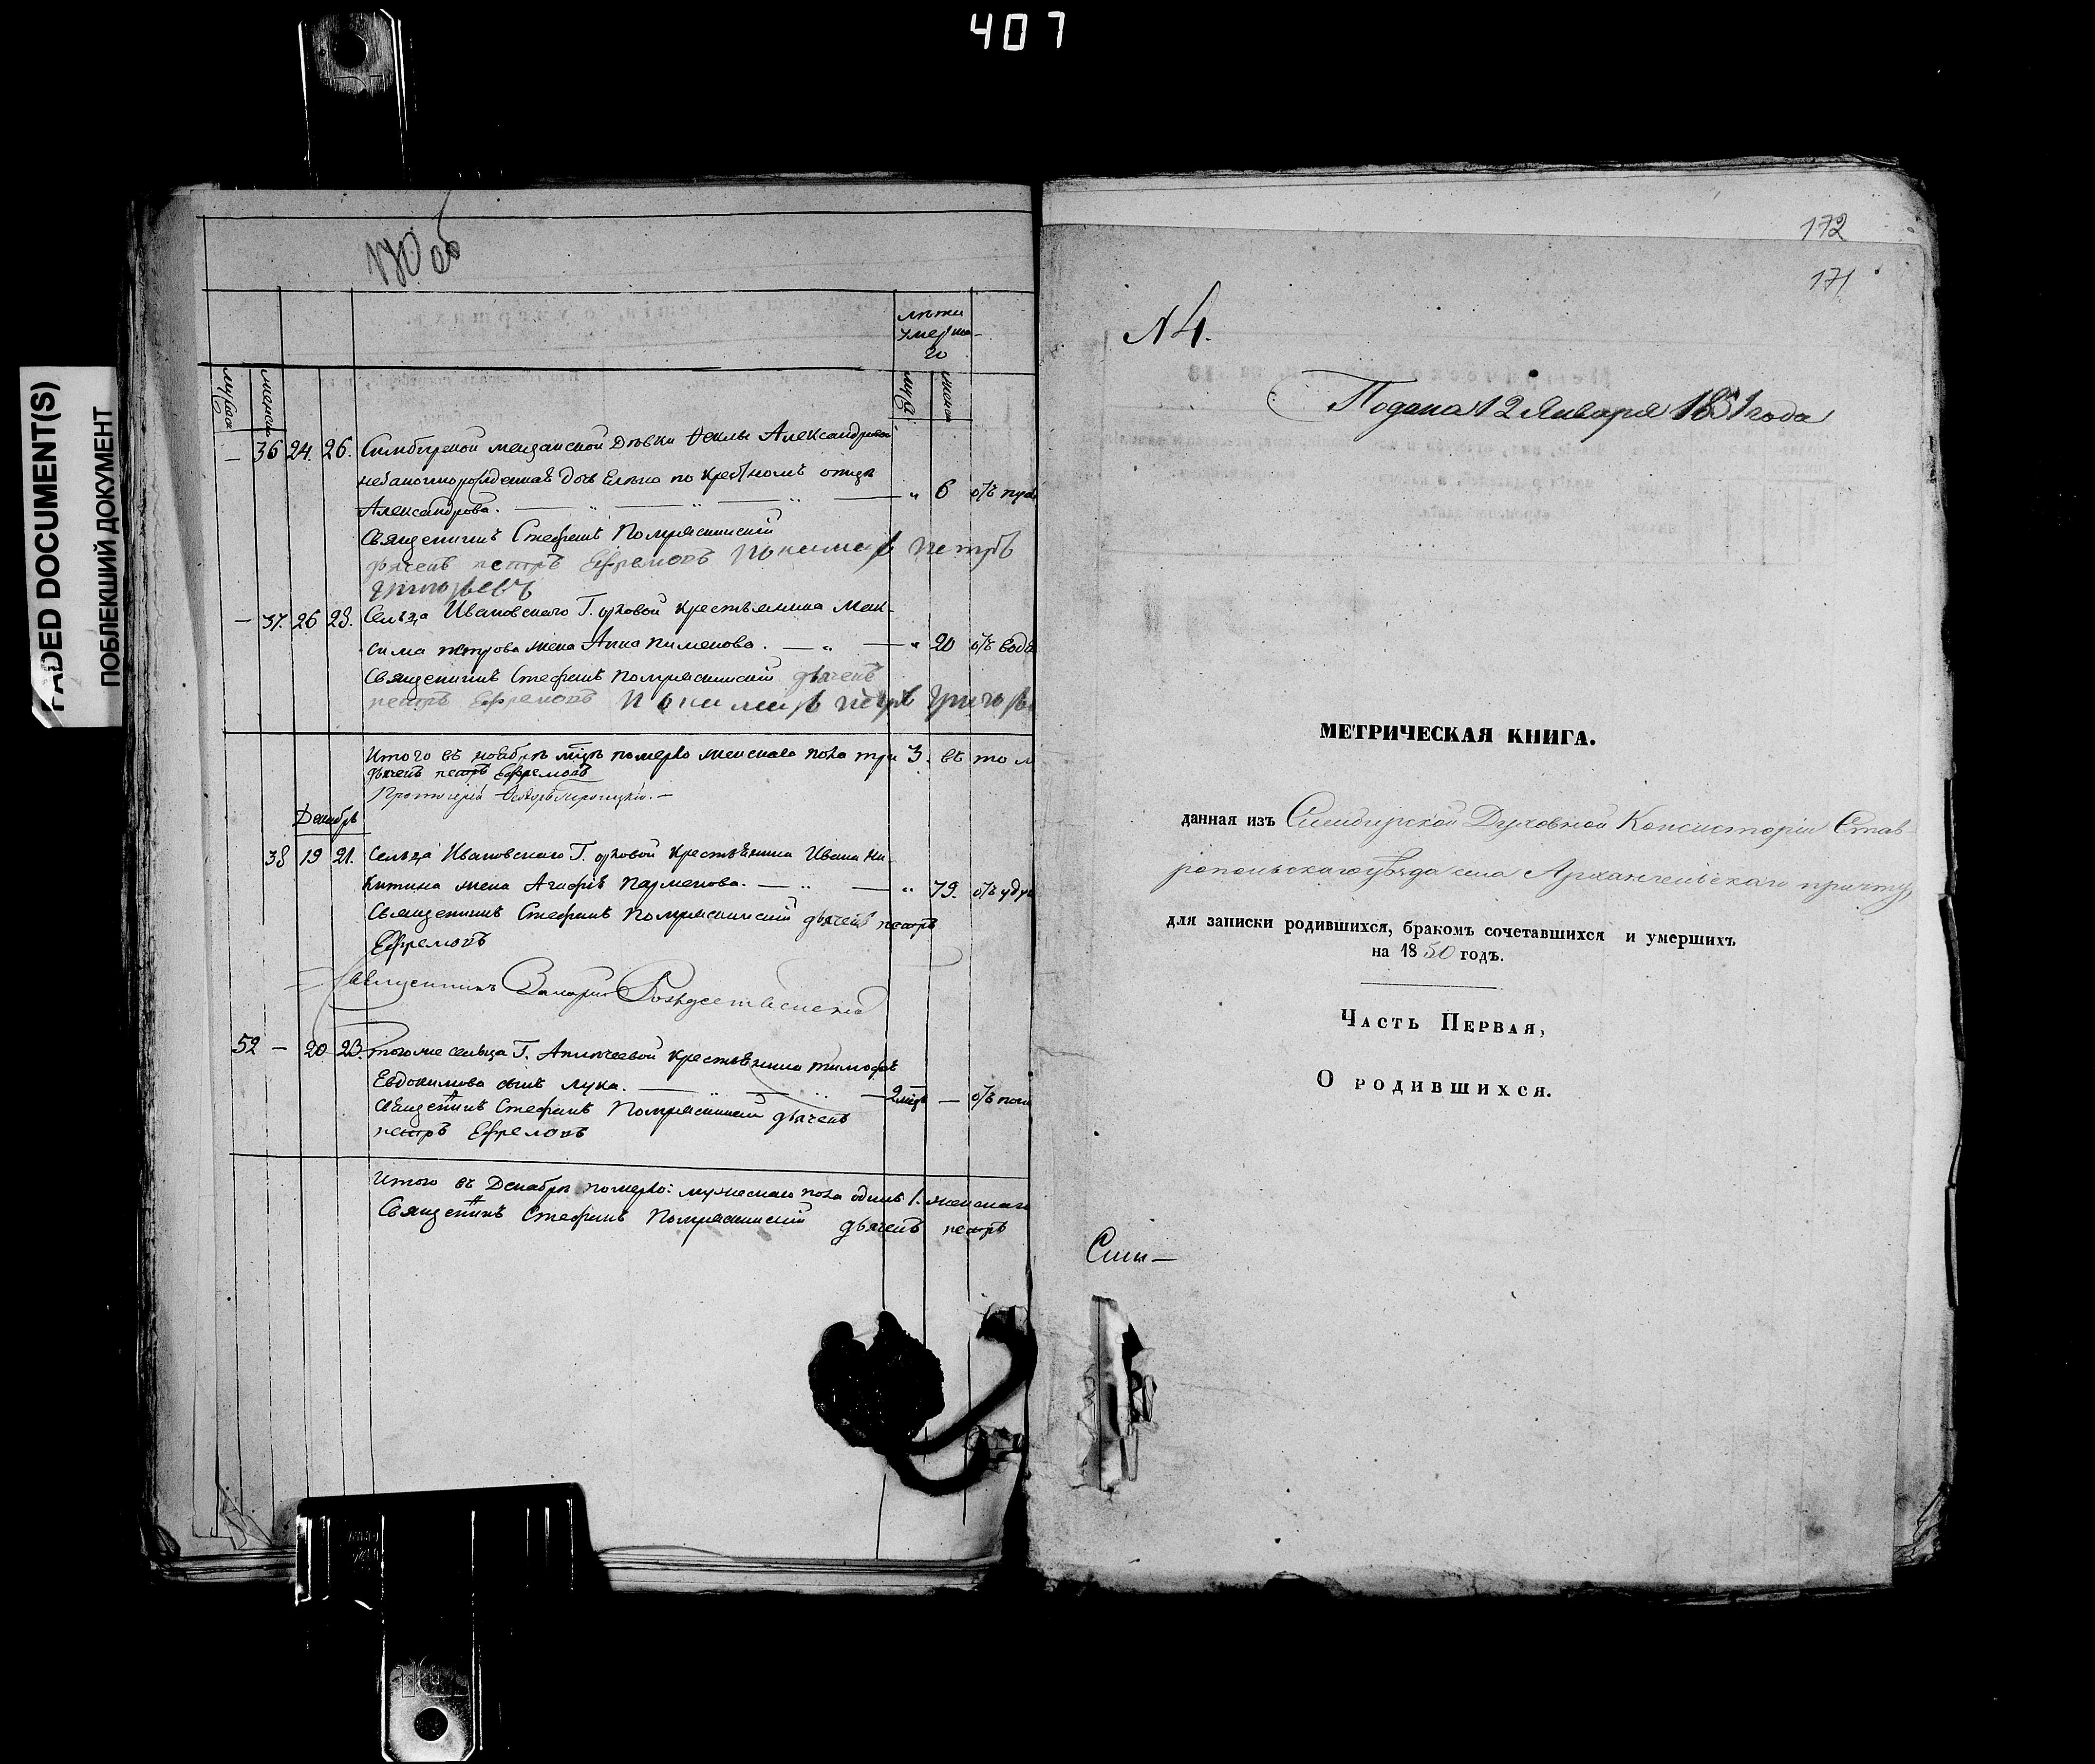 407
FADED DOCUMENT(S)
ПОБЛЕКШИЙ ДОКУМЕНТ
170 об
лѣта
умерша-
го
мужеска
женска
муж
женс
— 36 24. 26. Симбирской мещанской Дѣвки Ѳеклы Александровой
незаконнорожденная дочь Елена по крестномъ отцѣ
Александрова. — „ — „ — „ 6 отъ
Священникъ Стефанъ
дьячекъ петръ Ефремовъ Пономарь петръ
григорьевъ
— 37. 26 28. Сельца Ивановскаго Г. орловой крестьянина Мак-
сима петрова жена Анна пименова. — „ — „ 20 отъ
Священникъ Стефанъ дьячекъ
петръ Ефремовъ Пономарь петръ
Итого въ ноябрѣ мцѣ померло женскаго пола три 3. въ то
дьячекъ петръ Ефремовъ
Протоіерей
Декабрь
38 19 21. Сельца Ивановскаго Г. орловой крестьянина Ивана Ни-
китина жена Агафія парменова. — „ — „ 79. отъ
Священникъ Стефанъ дьячекъ петръ
Ефремовъ
Священникъ Рождественскій
52 — 20 23. тогоже сельца Г. крестьянина тимофея
Евдокимова сынъ лука. — 2 мцъ — отъ
Священникъ Стефанъ дьячекъ
петръ Ефремовъ
Итого въ Декабрѣ померло: мужескаго пола одинъ 1. женскаго
Священникъ Стефанъ дьячекъ петръ
172
171
N 4.
Подана 12 Января 1851 года
МЕТРИЧЕСКАЯ КНИГА.
данная изъ Симбирской Духовной Консисторіи Став-
ропольскаго уѣзда села Архангельскаго причту,
для записки родившихся, бракомъ сочетавшихся и умершихъ
на 1850 годъ.
Часть Первая,
О родившихся.
Сим—